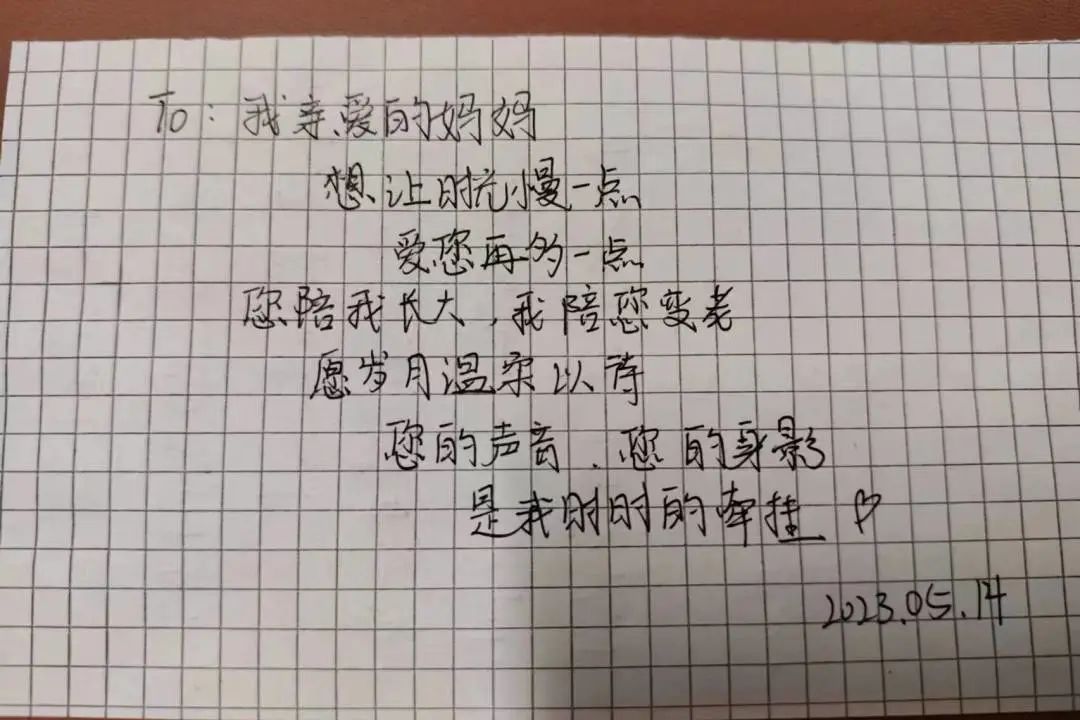 To：我亲爱的妈妈
想让时光慢一点
爱您再多一点
您陪我长大，我陪您变老
愿岁月温柔以待
您的声音、您的身影
是我时时的牵挂 ♡
2023.05.14